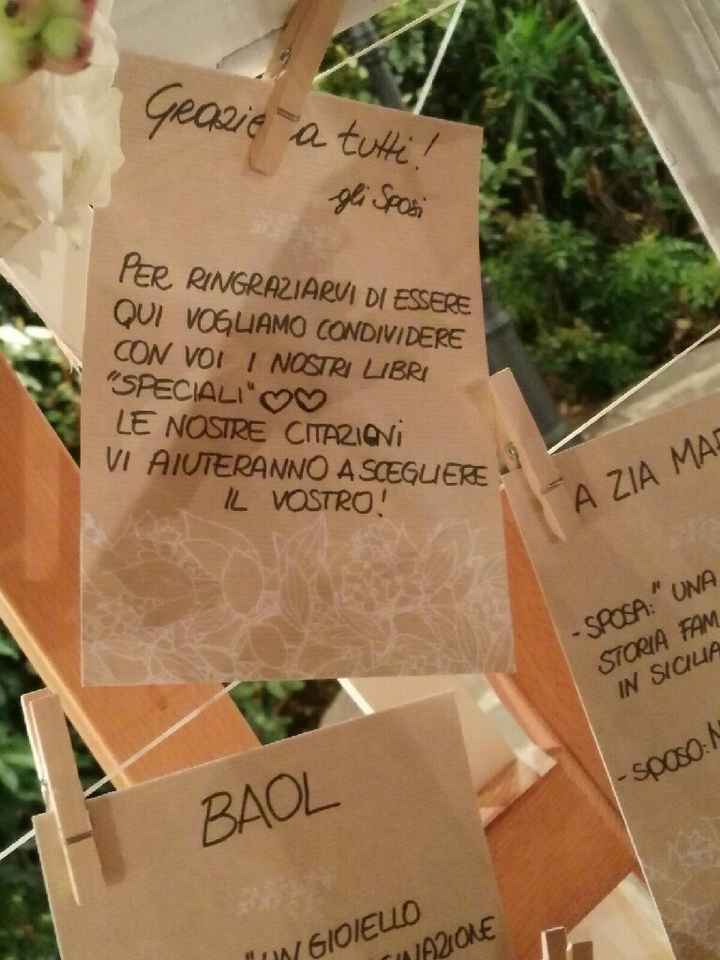 Grazie a tutti!
gli Sposi
PER RINGRAZIARVI DI ESSERE
QUI VOGLIAMO CONDIVIDERE
CON VOI I NOSTRI LIBRI
"SPECIALI" ♡♡
LE NOSTRE CITAZIONI
VI AIUTERANNO A SCEGLIERE
IL VOSTRO!
A ZIA MAR
-SPOSA: " UNA
STORIA FAM
IN SICILIA
-SPOSO:
BAOL
"UN GIOIELLO